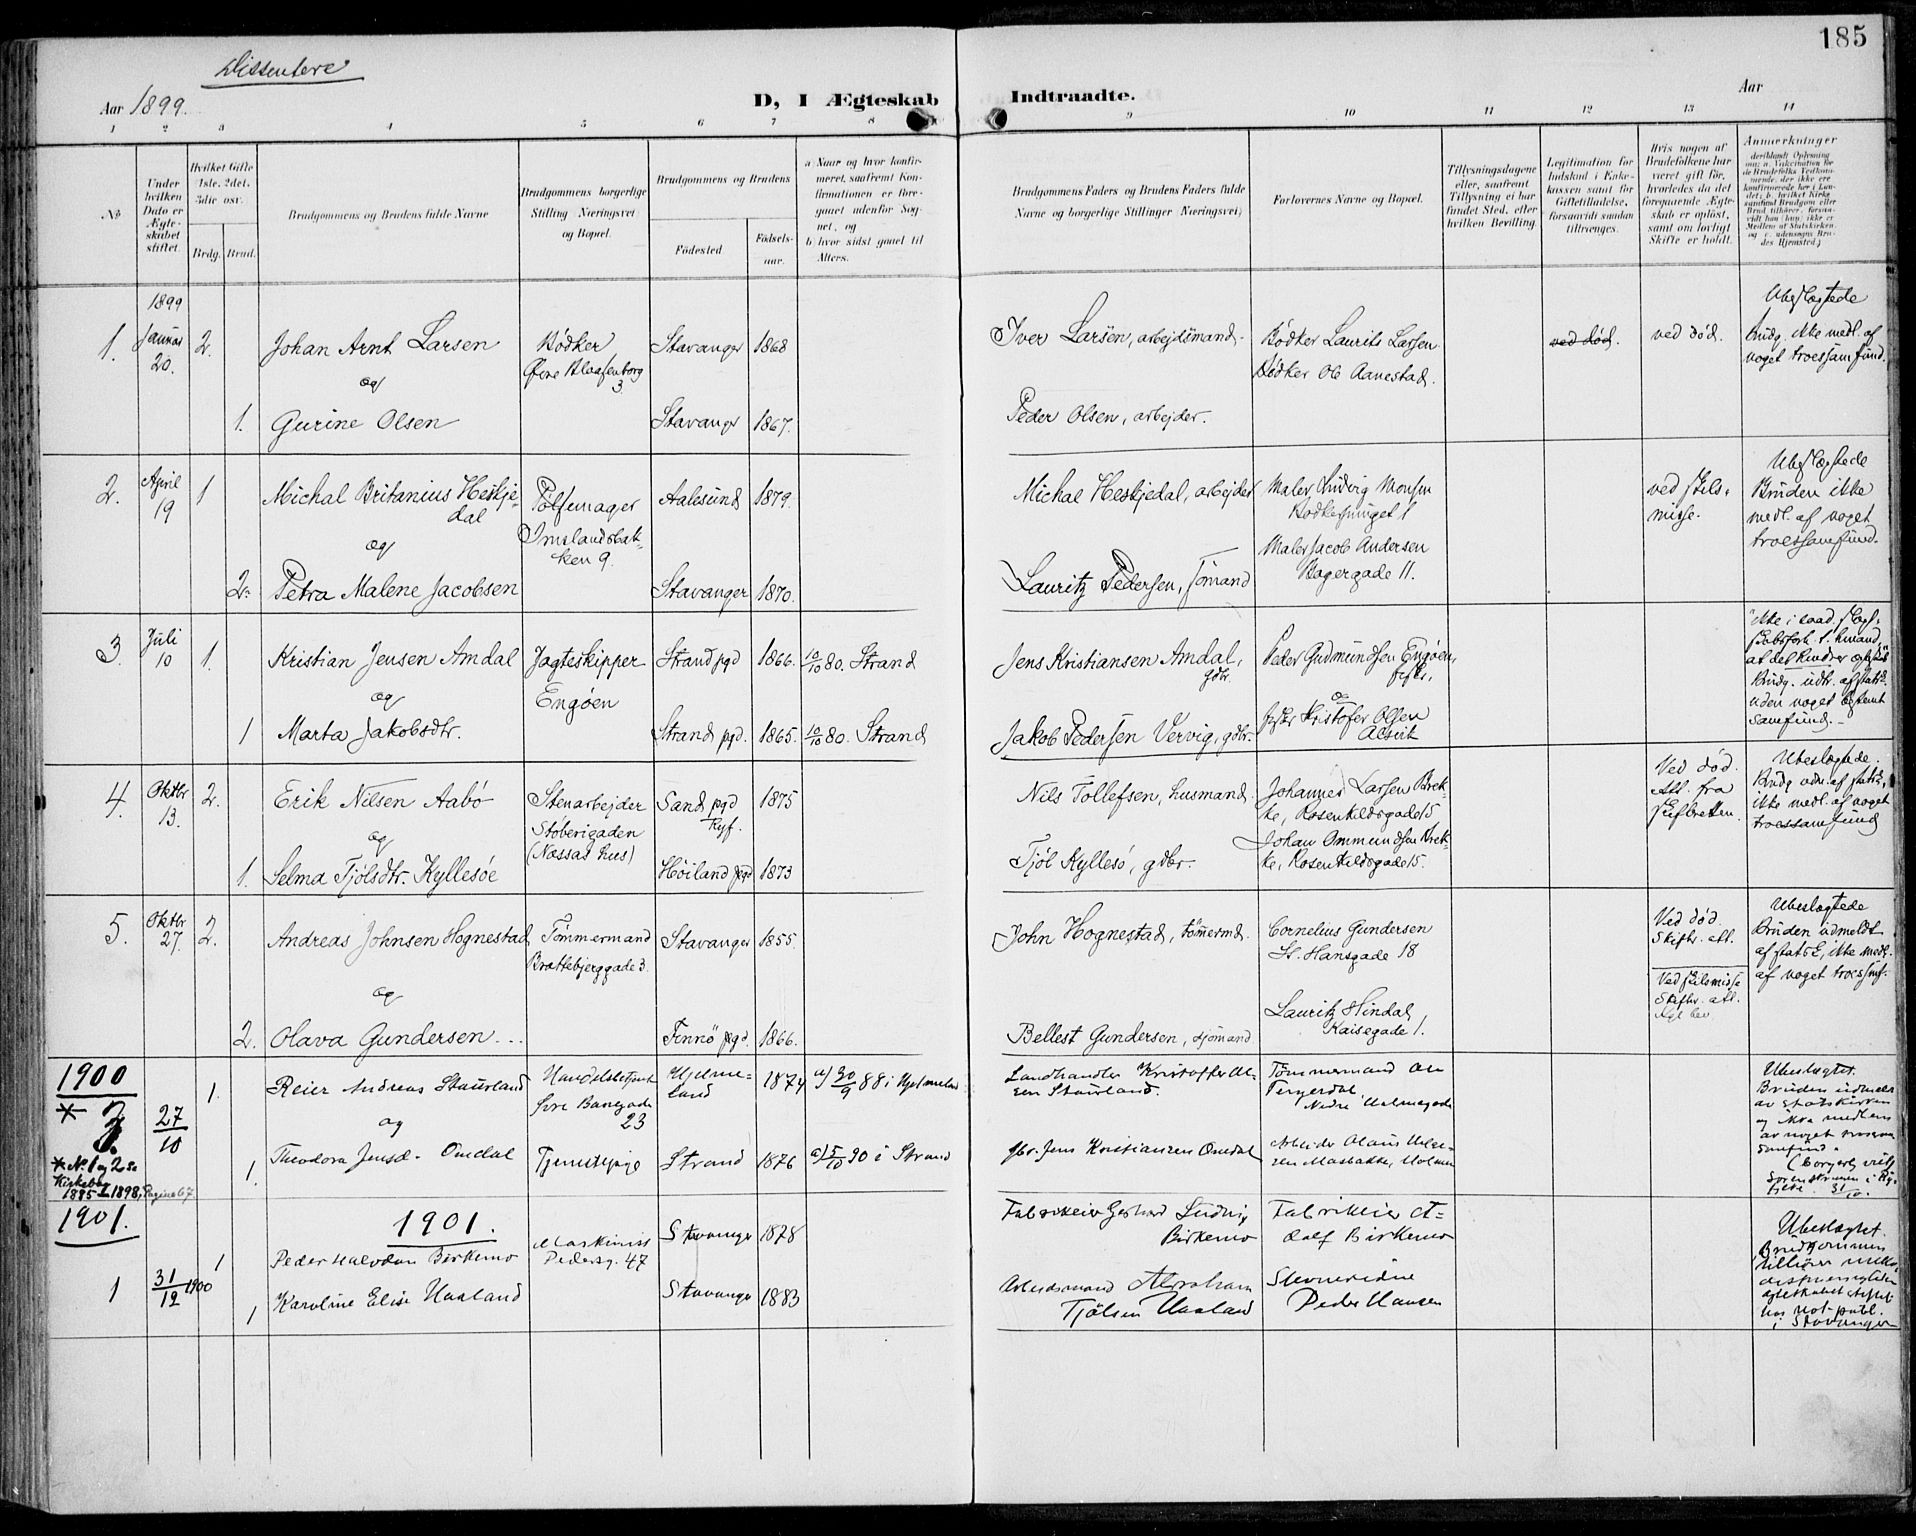 185
Dissentere
Aar 1899.
D, I Ægteskab Indtraadte.
Aar
1 2 3 4 5 6 7 8 9 10 11 12 13 14
No
Under hvilken Dato er Ægte-skabet stiftet.
Hvilket Gifte 1ste, 2det, 3die osv.
Brdg. Brud.
Brudgommens og Brudens fulde Navne
Brudgommens borgerlige Stilling Næringsvei og Bopæl.
Brudgommens og Brudens
Fødested
Fødsels-aar.
a) Naar og hvor konfir-meret, saafremt Kon-firmationen er fore-gaaet udenfor Sog-net, og
b) hvor sidst gaaet til Alters.
Brudgommens Faders og Brudens Faders fulde Navne og borgerlige Stillinger Næringsvei)
Forlovernes Navne og Bopæl.
Tillysningsdagene eller, saafremt Tillysning ei har fundet Sted, efter hvilken Bevilling.
Legitimation for Indskud i Enke-kassen samt for Giftetilladelse, forsaavidt saadan tiltrænges.
Hvis nogen af Brudefolkene har været gift før, hvorledes da det foregaaende Ægte-skab er opløst, samt om lovligt Skifte er holdt.
Anmerkninger
1.
1899
Januar
20.
2.
Johan Arnt Larsen
og
1. Gurine Olsen
Bødker
Øvre
3
Stavanger 1868
Stavanger 1867.
Iver Larsen, arbejdsmand.
Peder Olsen, arbejder.
Bødker Laurits Larsen
Bødker Ole Aanestad.
ved død.
ved død.
Ubeslægtede
Brudg. ikke medl. af
noget troessamfund.
2.
April
19
1
Michal Britanius Heskje-
dal
og
2. Petra Malene Jacobsen
Pølsemager
Imslandsbak-
ken 9.
Aalesund 1879.
Stavanger 1870.
Michal Heskjedal, arbejder
Lauritz Pedersen, sømand
Maler Ludvig Monsen
1
Maler Jacob Andersen
Bagergade 11.
ved skils-
misse.
Ubeslægtede
Bruden ikke
medl. af noget
troessamfund.
3.
Juli
10
1.
Kristian Jensen Amdal
og
1 Marta Jakobsdtr.
Jagteskipper
Engøen
Strand pgd 1866. 10/10 80. Strand
Strand pgd. 1865. 10/10 80. Strand
Jens Kristiansen Amdal,
gdbr.
Jakob Pedersen Vervig, gdbr.
Peder Gudmundsen Engøen,
og
Kristofer Olsen
ikke i saad. slægt-
at det hindrer
Brudg. udtr. af statsk.
uden noget bestemt
samfund.
4.
Oktbr
13.
2.
Erik Nilsen Aabø
og
1. Selma Tjølsdtr. Kyllesøe
Stenarbejder
Støberigaden
(Næssas hus)
Sand pgd
Ryf.
1875
Høiland pgd 1873
Nils Tollefsen, husmand.
Tjøl Kyllesø, gdbr.
Johannes Larsen Brek-
ke, Rosenkildegade 15
Johan Ommundsen Brek-
ke, Rosenkildegade 15.
Ved død.
Att. fra
skifteretten.
Ubeslægtede.
Brudg. udtr. af statsk.
ikke medl. af noget
troessamfund
5.
Oktbr
27.
2.
Andreas Johnsen Hognestad
og
2. Olava Gundersen
Tømmermand
Brattebjerggade 3.
Stavanger 1855.
Finnø pgd. 1866.
John Hognestad, tømermd.
Bellest Gundersen, sjømand
Cornelius Gundersen
St. Hansgade 18
Lauritz Hindal
Kaisegade 1.
Ved død.
Skiftr. att.
Ved skilsmisse
Skiftr. att.
Ubeslægtede
Bruden udmeldt
af statsk, ikke medl.
af noget troessamf.
1900
* 3.
* No. 1 og 2 se
Kirkebog
1885-1898, Pagina 67
27/10
1.
Reier Andreas Staurland
og
1. Theodora Jensd. Omdal
Handelsbetjent
Øvre Banegade
23
Tjenestepige
Hjelme-
land
1874 a) 30/9 88 i Hjelmeland
Strand 1876 a) 5/10 90 i Strand
Landhandler Kristoffer Ol-
sen Staurland.
gbr. Jens Kristiansen Omdal
Tømmermand
Nedre Holmegade
Arbeider
Ubeslægtet.
Bruden udmeldt
av statskirken
og ikke medlem
av noget troessam-
samfund.
(borgerl. viet
31/10.
1901.
1901.
1
31/12 1900
1
Peder Halvdan Birkemo
1 Karoline Elise Haaland
Maskinist
Pedersg. 47
Stavanger 1878
Stavanger 1883
Fabrikeier Gerhard Ludvig
Birkemo
Arbeidsmand Abraham
Tjølsen Haaland
Fabrikeier A-
dolf Birkemo
Peder Hansen
Ubeslægtet.
Brudgommen
tilhører
egteskabet stiftet
hos not. publ.
i Stavanger